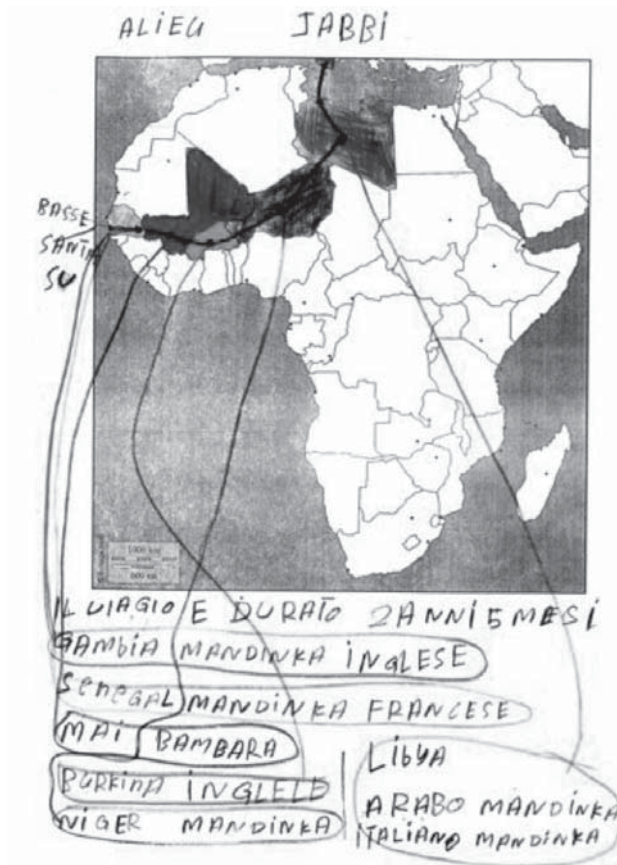 ALIEU JABBI
BASSE
SANTA
SU
1000 km
600 mi
IL VIAGIO E DURATO 2 ANNI 5 MESI
GAMBIA MANDINKA INGLESE
SENEGAL MANDINKA FRANCESE
MAI BAMBARA
BURKINA INGLELE
NIGER MANDINKA
LIBYA
ARABO MANDINKA
ITALIANO MANDINKA